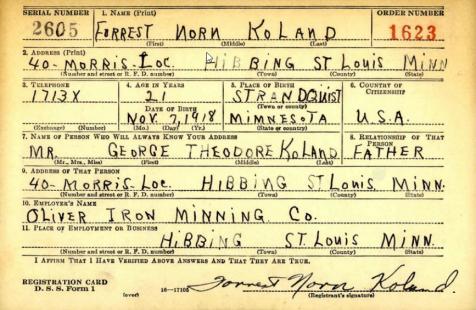 SERIAL NUMBER 1. NAME (Print) ORDER NUMBER
2605 FORREST NORN KOLAND 1623
(First) (Middle) (Last)
2. ADDRESS (Print)
40- MORRIS-LOC. HIBBING ST LOUIS MINN
(Number and street or R. F. D. number) (Town) (County) (State)
3. TELEPHONE 4. AGE IN YEARS 5. PLACE OF BIRTH 6. COUNTRY OF CITIZENSHIP
1713X 21 STRANDQUIST
DATE OF BIRTH (Town or county)
NOV. 7, 1918 MINNESOTA U.S.A.
(Exchange) (Number) (Mo.) (Day) (Yr.) (State or country)
7. NAME OF PERSON WHO WILL ALWAYS KNOW YOUR ADDRESS 8. RELATIONSHIP OF THAT PERSON
MR. GEORGE THEODORE KOLAND FATHER
(Mr., Mrs., Miss) (First) (Middle) (Last)
9. ADDRESS OF THAT PERSON
40-MORRIS-LOC. HIBBING ST. LOUIS MINN.
(Number and street or R. F. D. number) (Town) (County) (State)
10. EMPLOYER'S NAME
OLIVER IRON MINNING CO.
11. PLACE OF EMPLOYMENT OR BUSINESS
HIBBING ST. LOUIS MINN.
(Number and street or R. F. D. number) (Town) (County) (State)
I AFFIRM THAT I HAVE VERIFIED ABOVE ANSWERS AND THAT THEY ARE TRUE.
REGISTRATION CARD
D. S. S. Form 1 (over) 16—17105 Forrest Norn Koland.
(Registrant's signature)